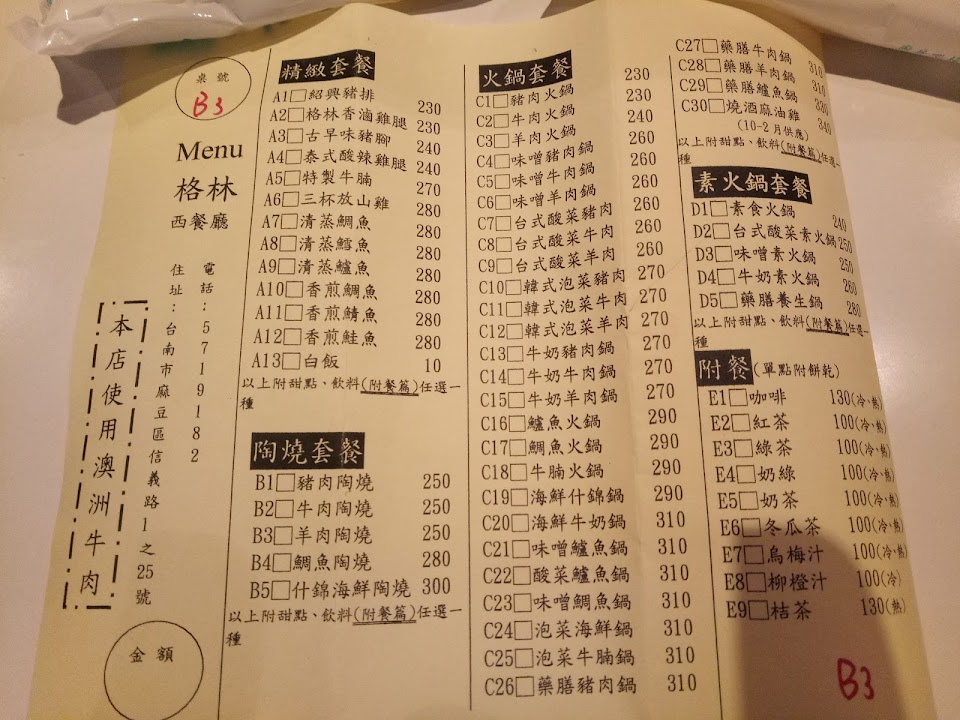 桌號
B3
Menu
格林
西餐廳
電話:5719182
住址:台南市麻豆區信義路1之25號
本店使用澳洲牛肉
金額
精緻套餐
A1□紹興豬排 230
A2□格林香滷雞腿 230
A3□古早味豬腳 240
A4□泰式酸辣雞腿 240
A5□特製牛腩 270
A6□三杯放山雞 280
A7□清蒸鯛魚 280
A8□清蒸鱈魚 280
A9□清蒸鱸魚 280
A10□香煎鯛魚 280
A11□香煎鯖魚 280
A12□香煎鮭魚 280
A13□白飯 10
以上附甜點、飲料(附餐篇)任選一
種
陶燒套餐
B1□豬肉陶燒 250
B2□牛肉陶燒 250
B3□羊肉陶燒 250
B4□鯛魚陶燒 280
B5□什錦海鮮陶燒 300
以上附甜點、飲料(附餐篇)任選一
種
火鍋套餐
C1□豬肉火鍋 230
C2□牛肉火鍋 230
C3□羊肉火鍋 240
C4□味噌豬肉鍋 260
C5□味噌牛肉鍋 260
C6□味噌羊肉鍋 260
C7□台式酸菜豬肉 260
C8□台式酸菜牛肉 260
C9□台式酸菜羊肉 260
C10□韓式泡菜豬肉 270
C11□韓式泡菜牛肉 270
C12□韓式泡菜羊肉 270
C13□牛奶豬肉鍋 270
C14□牛奶牛肉鍋 270
C15□牛奶羊肉鍋 270
C16□鱸魚火鍋 290
C17□鯛魚火鍋 290
C18□牛腩火鍋 290
C19□海鮮什錦鍋 290
C20□海鮮牛奶鍋 310
C21□味噌鱸魚鍋 310
C22□酸菜鱸魚鍋 310
C23□味噌鯛魚鍋 310
C24□泡菜海鮮鍋 310
C25□泡菜牛腩鍋 310
C26□藥膳豬肉鍋 310
C27□藥膳牛肉鍋 310
C28□藥膳羊肉鍋 310
C29□藥膳鱸魚鍋 330
C30□燒酒麻油雞 340
(10-2月供應)
以上附甜點、飲料(附餐篇)任選一
種
素火鍋套餐
D1□素食火鍋 240
D2□台式酸菜素火鍋 250
D3□味噌素火鍋 250
D4□牛奶素火鍋 260
D5□藥膳養生鍋 280
以上附甜點、飲料(附餐篇)任選一
種
附餐(單點附餅乾)
E1□咖啡 130(冷、熱)
E2□紅茶 100(冷、熱)
E3□綠茶 100(冷、熱)
E4□奶綠 100(冷、熱)
E5□奶茶 100(冷、熱)
E6□冬瓜茶 100(冷、熱)
E7□烏梅汁 100(冷、熱)
E8□柳橙汁 100(冷)
E9□桔茶 130(熱)
B3